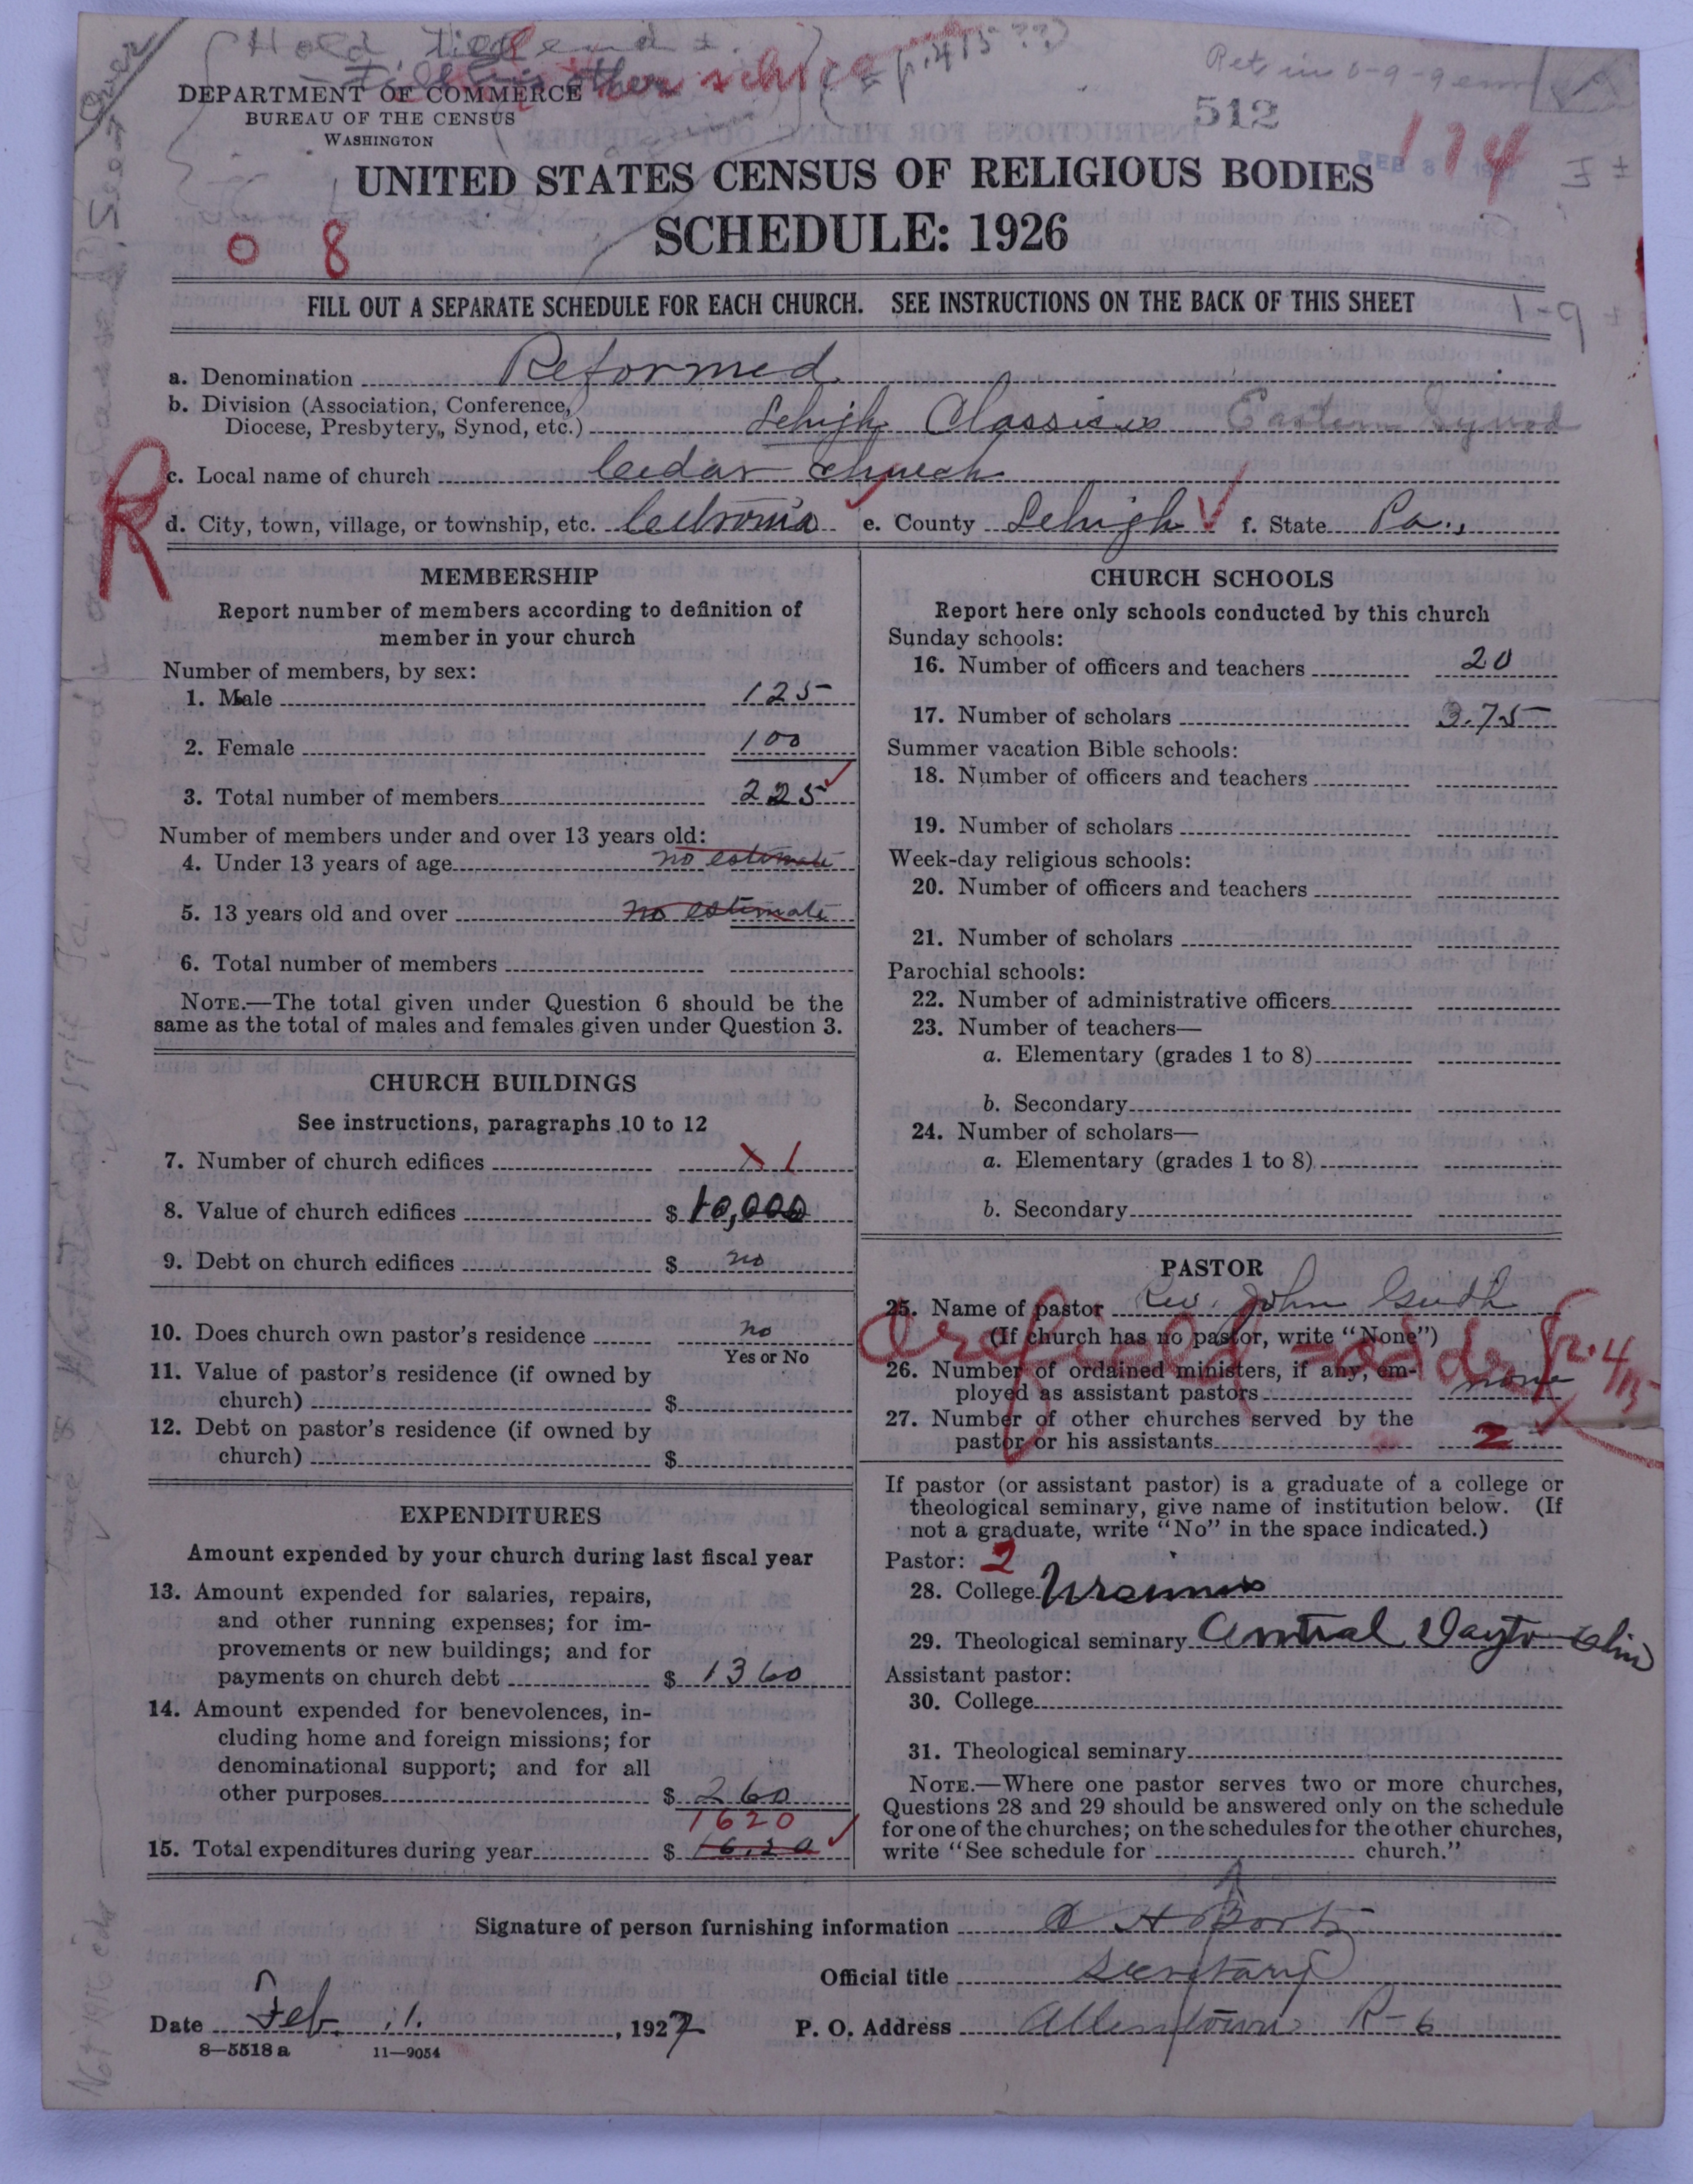 over
Hold
other
(p. 415 ??)
DEPARTMENT OF COMMERCE
BUREAU OF THE CENSUS
WASHINGTON
512
174
FEB 8
UNITED STATES CENSUS OF RELIGIOUS BODIES
SCHEDULE: 1926
0 8
FILL OUT A SEPARATE SCHEDULE FOR EACH CHURCH. SEE INSTRUCTIONS ON THE BACK OF THIS SHEET
1-9
a. Denomination Reformed
b. Division (Association, Conference, Diocese, Presbytery, Synod, etc.) Lehigh Classis Eastern Synod
R
c. Local name of church Cedar church
d. City, town, village, or township, etc. Cetronia e. County Lehigh f. State Pa.
MEMBERSHIP
Report number of members according to definition of
member in your church
Number of members, by sex:
1. Male 125
2. Female 100
3. Total number of members 225
Number of members under and over 13 years old:
4. Under 13 years of age no estimate
5. 13 years old and over no estimate
6. Total number of members
NOTE.—The total given under Question 6 should be the
same as the total of males and females given under Question 3.
CHURCH BUILDINGS
See instructions, paragraphs 10 to 12
7. Number of church edifices 1
8. Value of church edifices $ 10,000
9. Debt on church edifices $ no
10. Does church own pastor's residence no
Yes or No
11. Value of pastor's residence (if owned by
church) $
12. Debt on pastor's residence (if owned by
church) $
EXPENDITURES
Amount expended by your church during last fiscal year
13. Amount expended for salaries, repairs,
and other running expenses; for im-
provements or new buildings; and for
payments on church debt $ 1360
14. Amount expended for benevolences, in-
cluding home and foreign missions; for
denominational support; and for all
other purposes $ 260
1620
15. Total expenditures during year $ 1620
CHURCH SCHOOLS
Report here only schools conducted by this church
Sunday schools:
16. Number of officers and teachers 20
17. Number of scholars 375
Summer vacation Bible schools:
18. Number of officers and teachers
19. Number of scholars
Week-day religious schools:
20. Number of officers and teachers
21. Number of scholars
Parochial schools:
22. Number of administrative officers
23. Number of teachers—
a. Elementary (grades 1 to 8)
b. Secondary
24. Number of scholars—
a. Elementary (grades 1 to 8)
b. Secondary
PASTOR
25. Name of pastor Rev. John Guth
(If church has no pastor, write "None")
Orefield
26. Number of ordained ministers, if any, em-
ployed as assistant pastors none
27. Number of other churches served by the
pastor or his assistants 2
If pastor (or assistant pastor) is a graduate of a college or
theological seminary, give name of institution below. (If
not a graduate, write "No" in the space indicated.)
Pastor: 2
28. College Ursinus
29. Theological seminary Central Dayton Ohio
Assistant pastor:
30. College
31. Theological seminary
NOTE.—Where one pastor serves two or more churches,
Questions 28 and 29 should be answered only on the schedule
for one of the churches; on the schedules for the other churches,
write "See schedule for church."
Signature of person furnishing information
Official title Secretary
Date Feb. 1. , 1927 P. O. Address Allentown R-6
8—5518 a 11—9054